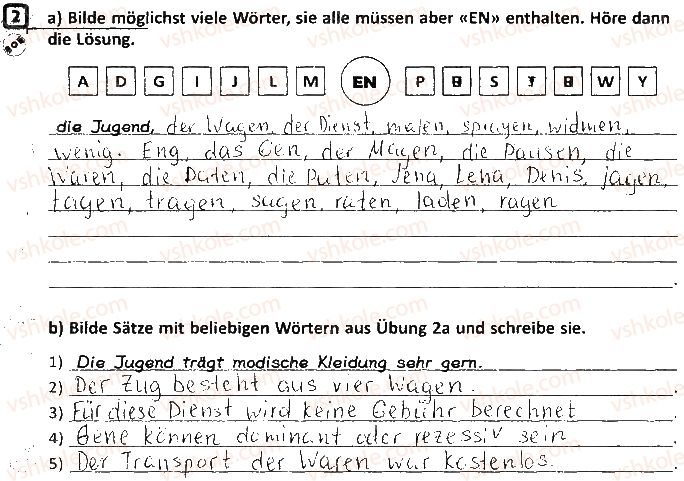 2 a) Bilde möglichst viele Wörter, sie alle müssen aber «EN» enthalten. Höre dann
die Lösung.
A D G I J L M EN P S W Y
die Jugend, der Wagen, der Dienst, malen, sprayen, widmen,
wenig. Eng, das Gen, der Magen, die Pausen, die
Waren, die Daten, die Puten, Jena, Lena, Denis, jagen,
tagen, tragen, sagen, raten, laden, ragen
b) Bilde Sätze mit beliebigen Wörtern aus Übung 2a und schreibe sie.
1) Die Jugend trägt modische Kleidung sehr gern.
2) Der Zug besteht aus vier Wagen.
3) Für diese Dienst wird keine Gebühr berechnet.
4) Gene können dominant oder rezessiv sein.
5) Der Transport der Waren war kostenlos.